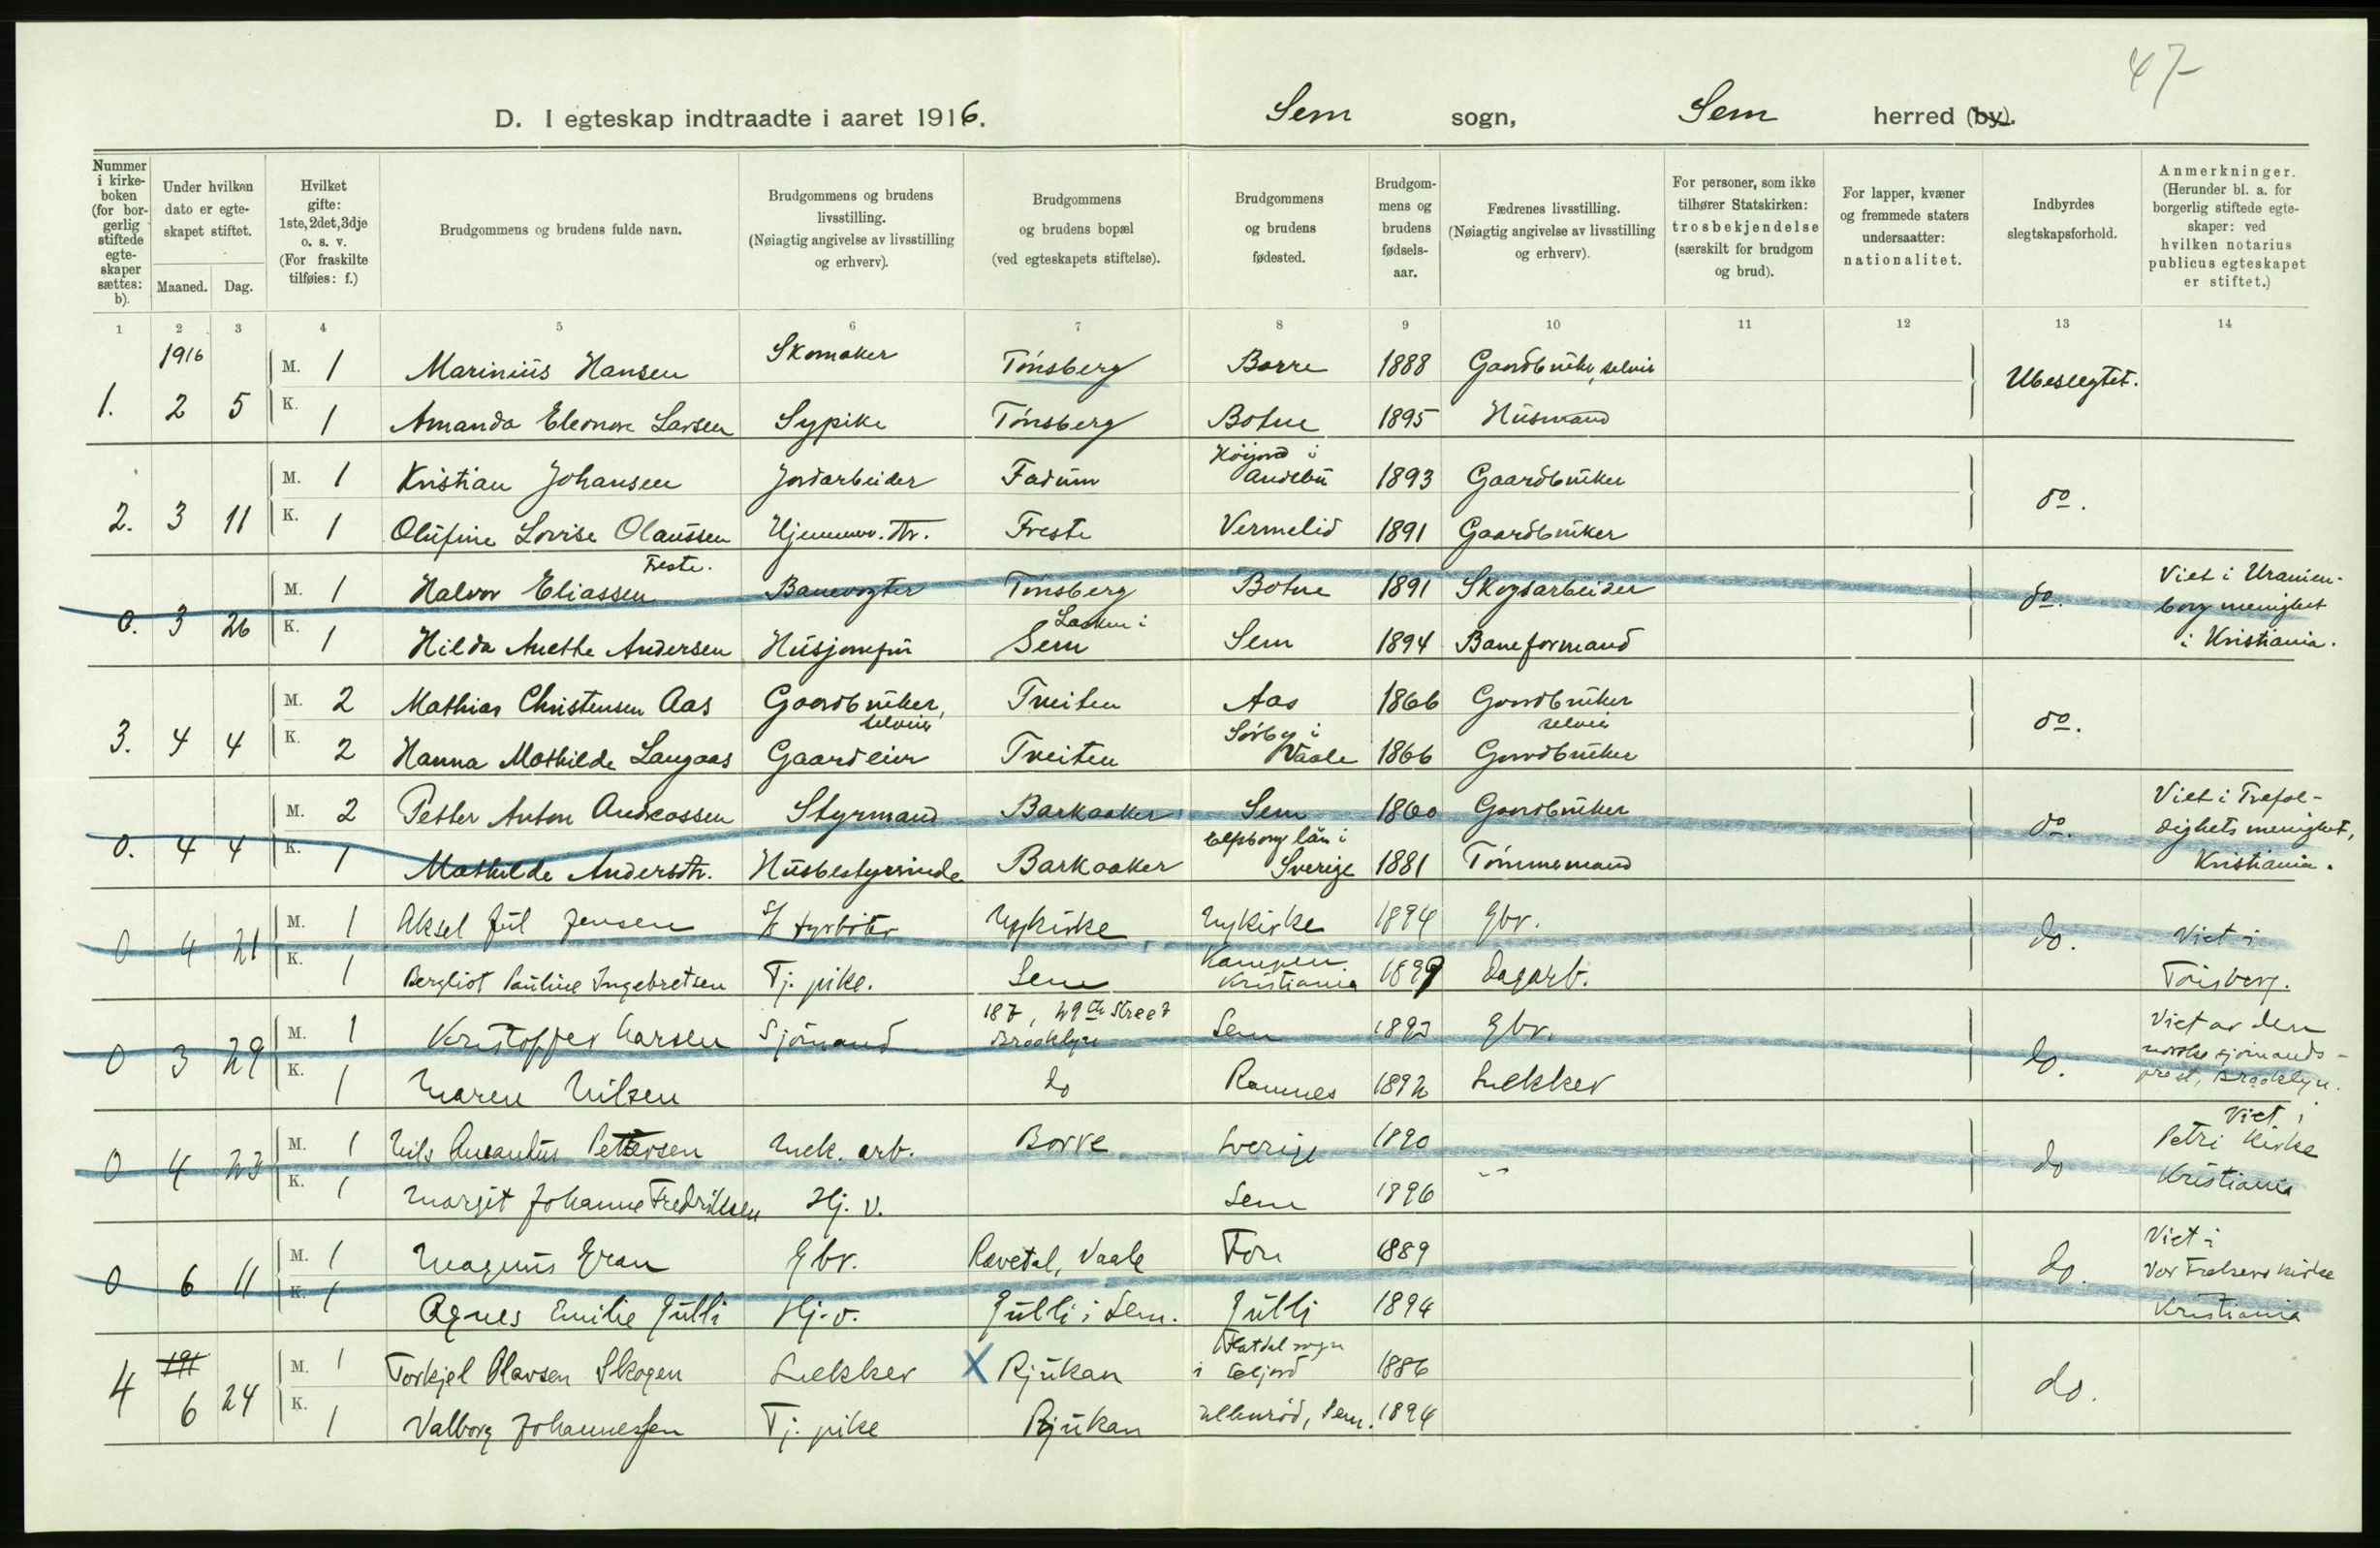 47
D. I egteskap indtraadte i aaret 1916. Sem sogn, Sem herred (by).
Nummer i kirke-boken (for bor-gerlig stiftede egte-skaper sættes: b).
Under hvilken dato er egte-skapet stiftet.
Maaned. Dag.
Hvilket gifte: 1ste, 2det, 3dje o. s. v. (For fraskilte tilføies: f.)
Brudgommens og brudens fulde navn.
Brudgommens og brudens livsstilling. (Nøiagtig angivelse av livsstilling og erhverv).
Brudgommens og brudens bopæl (ved egteskapets stiftelse).
Brudgommens og brudens fødested.
Brudgom-mens og brudens fødsels-aar.
Fædrenes livsstilling. (Nøiagtig angivelse av livsstilling og erhverv).
For personer, som ikke tilhører Statskirken: trosbekjendelse (særskilt for brudgom og brud).
For lapper, kvæner og fremmede staters undersaatter: nationalitet.
Indbyrdes slegtskapsforhold.
Anmerkninger. (Herunder bl. a. for borgerlig stiftede egte-skaper: ved hvilken notarius publicus egteskapet er stiftet.)
1 2 3 4 5 6 7 8 9 10 11 12 13 14
1916
M. 1 Marinius Hansen Skomaker Tönsberg Borre 1888 Gaardbruker, selveier Ubeslegtet.
1. 2 5 K. 1 Amanda Eleonore Larsen Sypike Tönsberg Botne 1895 Husmand
M. 1 Kristian Johansen Jordarbeider Fadum Höijord i Andebu 1893 Gaardbruker do.
2. 3 11 K. 1 Olufine Lovise Olaussen Hjemmev. dtr. Freste Vermelid 1891 Gaardbruker
Freste.
M. 1 Halvor Eliassen Banevogter Tönsberg Botne 1891 Skogsarbeider do. Viet i Uranien-borg menighet i Kristiania.
0. 3 26 K. 1 Hilda Anethe Andersen Husjomfru i Sem Sem 1894 Baneformand
M. 2 Mathias Christensen Aas Gaardbruker, selveier Tveiten Aas 1866 Gaardbruker selveier do.
3. 4 4 K. 2 Hanna Mathilde Langaas Gaardeier Tveiten Sörby i Vaale 1866 Gaardbruker
M. 2 Petter Anton Andreassen Styrmand Barkaaker Sem 1860 Gaardbruker do. Viet i Trefol-dighets menighet, Kristiania.
0. 4 4 K. 1 Mathilde Andersdtr. Husbestyrinde Barkaaker Elfsborg län i Sverige 1881 Tömmermand
M. 1 Aksel Jul Jensen Nykirke Nykirke 1894 Gbr. do. Viet i Tönsberg.
0 4 21 K. 1 Bergliot Pauline Ingebretsen Tj. pike. Sem Kampen Kristiania 1899 Dagarb.
M. 1 Kristoffer Larsen Sjömand 187, 49th Street Brooklyn Sem Gbr. do. Viet av den norske sjömands-prest, Brooklyn.
0 3 29 K. 1 Maren Nilsen do Ramnes 1892 Snekker
M. 1 Nils Amandus Pettersen Mek. arb. Borre Sverige 1890 do Viet i Petri Kirke Kristiania
0 4 23 K. 1 Margit Johanne Fredriksen Hj. v. Sem 1896
M. 1 Magnus Gran Gbr. Revetal, Vaale Fon 1889 do. Viet i Vor Frelsers kirke Kristiania
0 6 11 K. 1 Agnes Emilie Gulli Hj. v. Gulli i Sem. Gulli 1894
191
M. 1 Torkjel Olavsen Skogen Snekker X Rjukan Flatdal sogn i Seljord 1886 do.
4 6 24 K. 1 Valborg Johannessen Tj. pike Rjukan Ullenröd, Sem. 1894